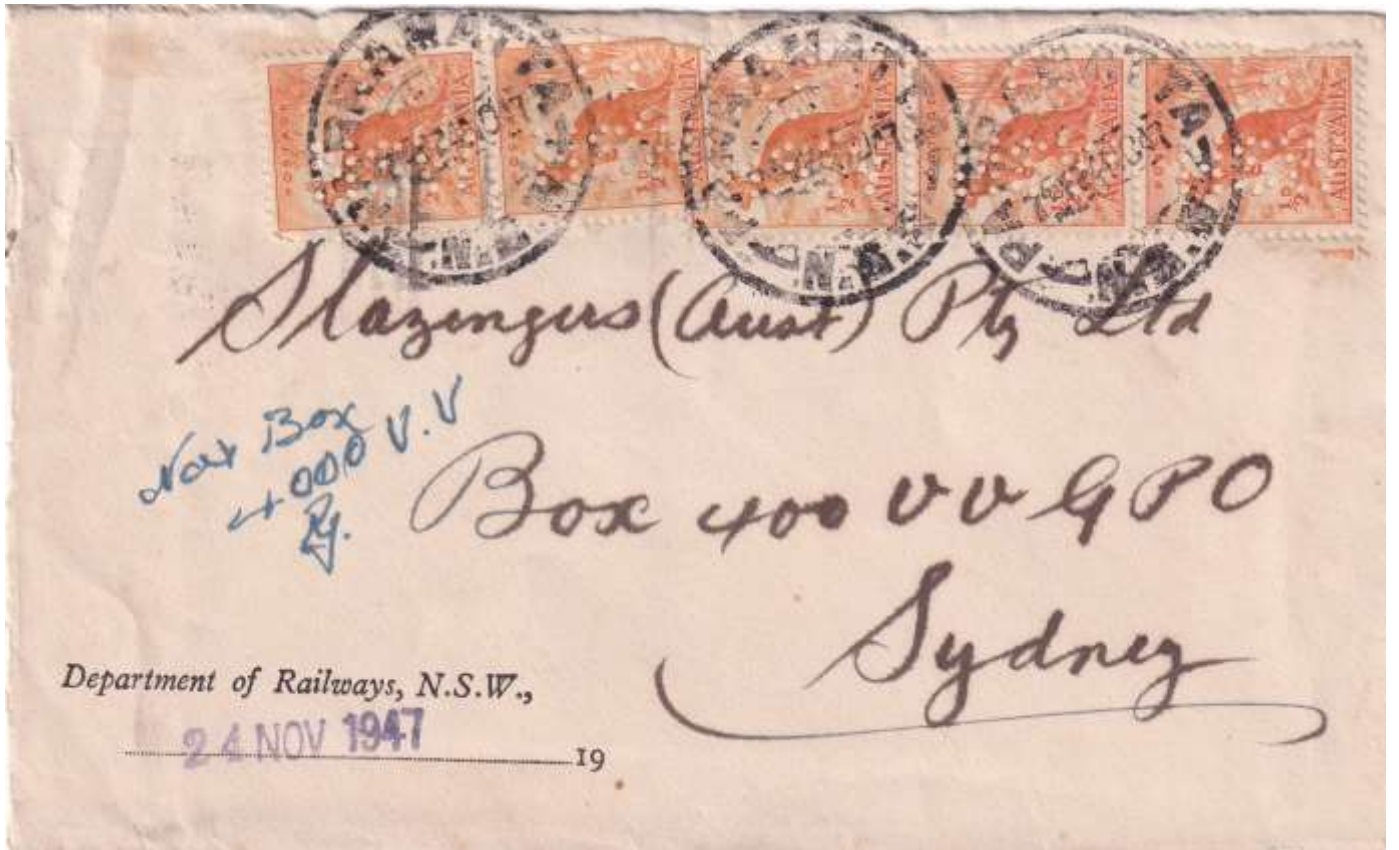 POSTAGE
½D
AUSTRALIA
½D
AUSTRALIA
½D
AUSTRALIA
½D
AUSTRALIA
PARRAMATTA
N.S.W.
Slazengers (Aust) Pty Ltd
Not Box
4000 V.V
Box 400 V V G P O
Sydney
Department of Railways, N.S.W.,
24 NOV 1947
19